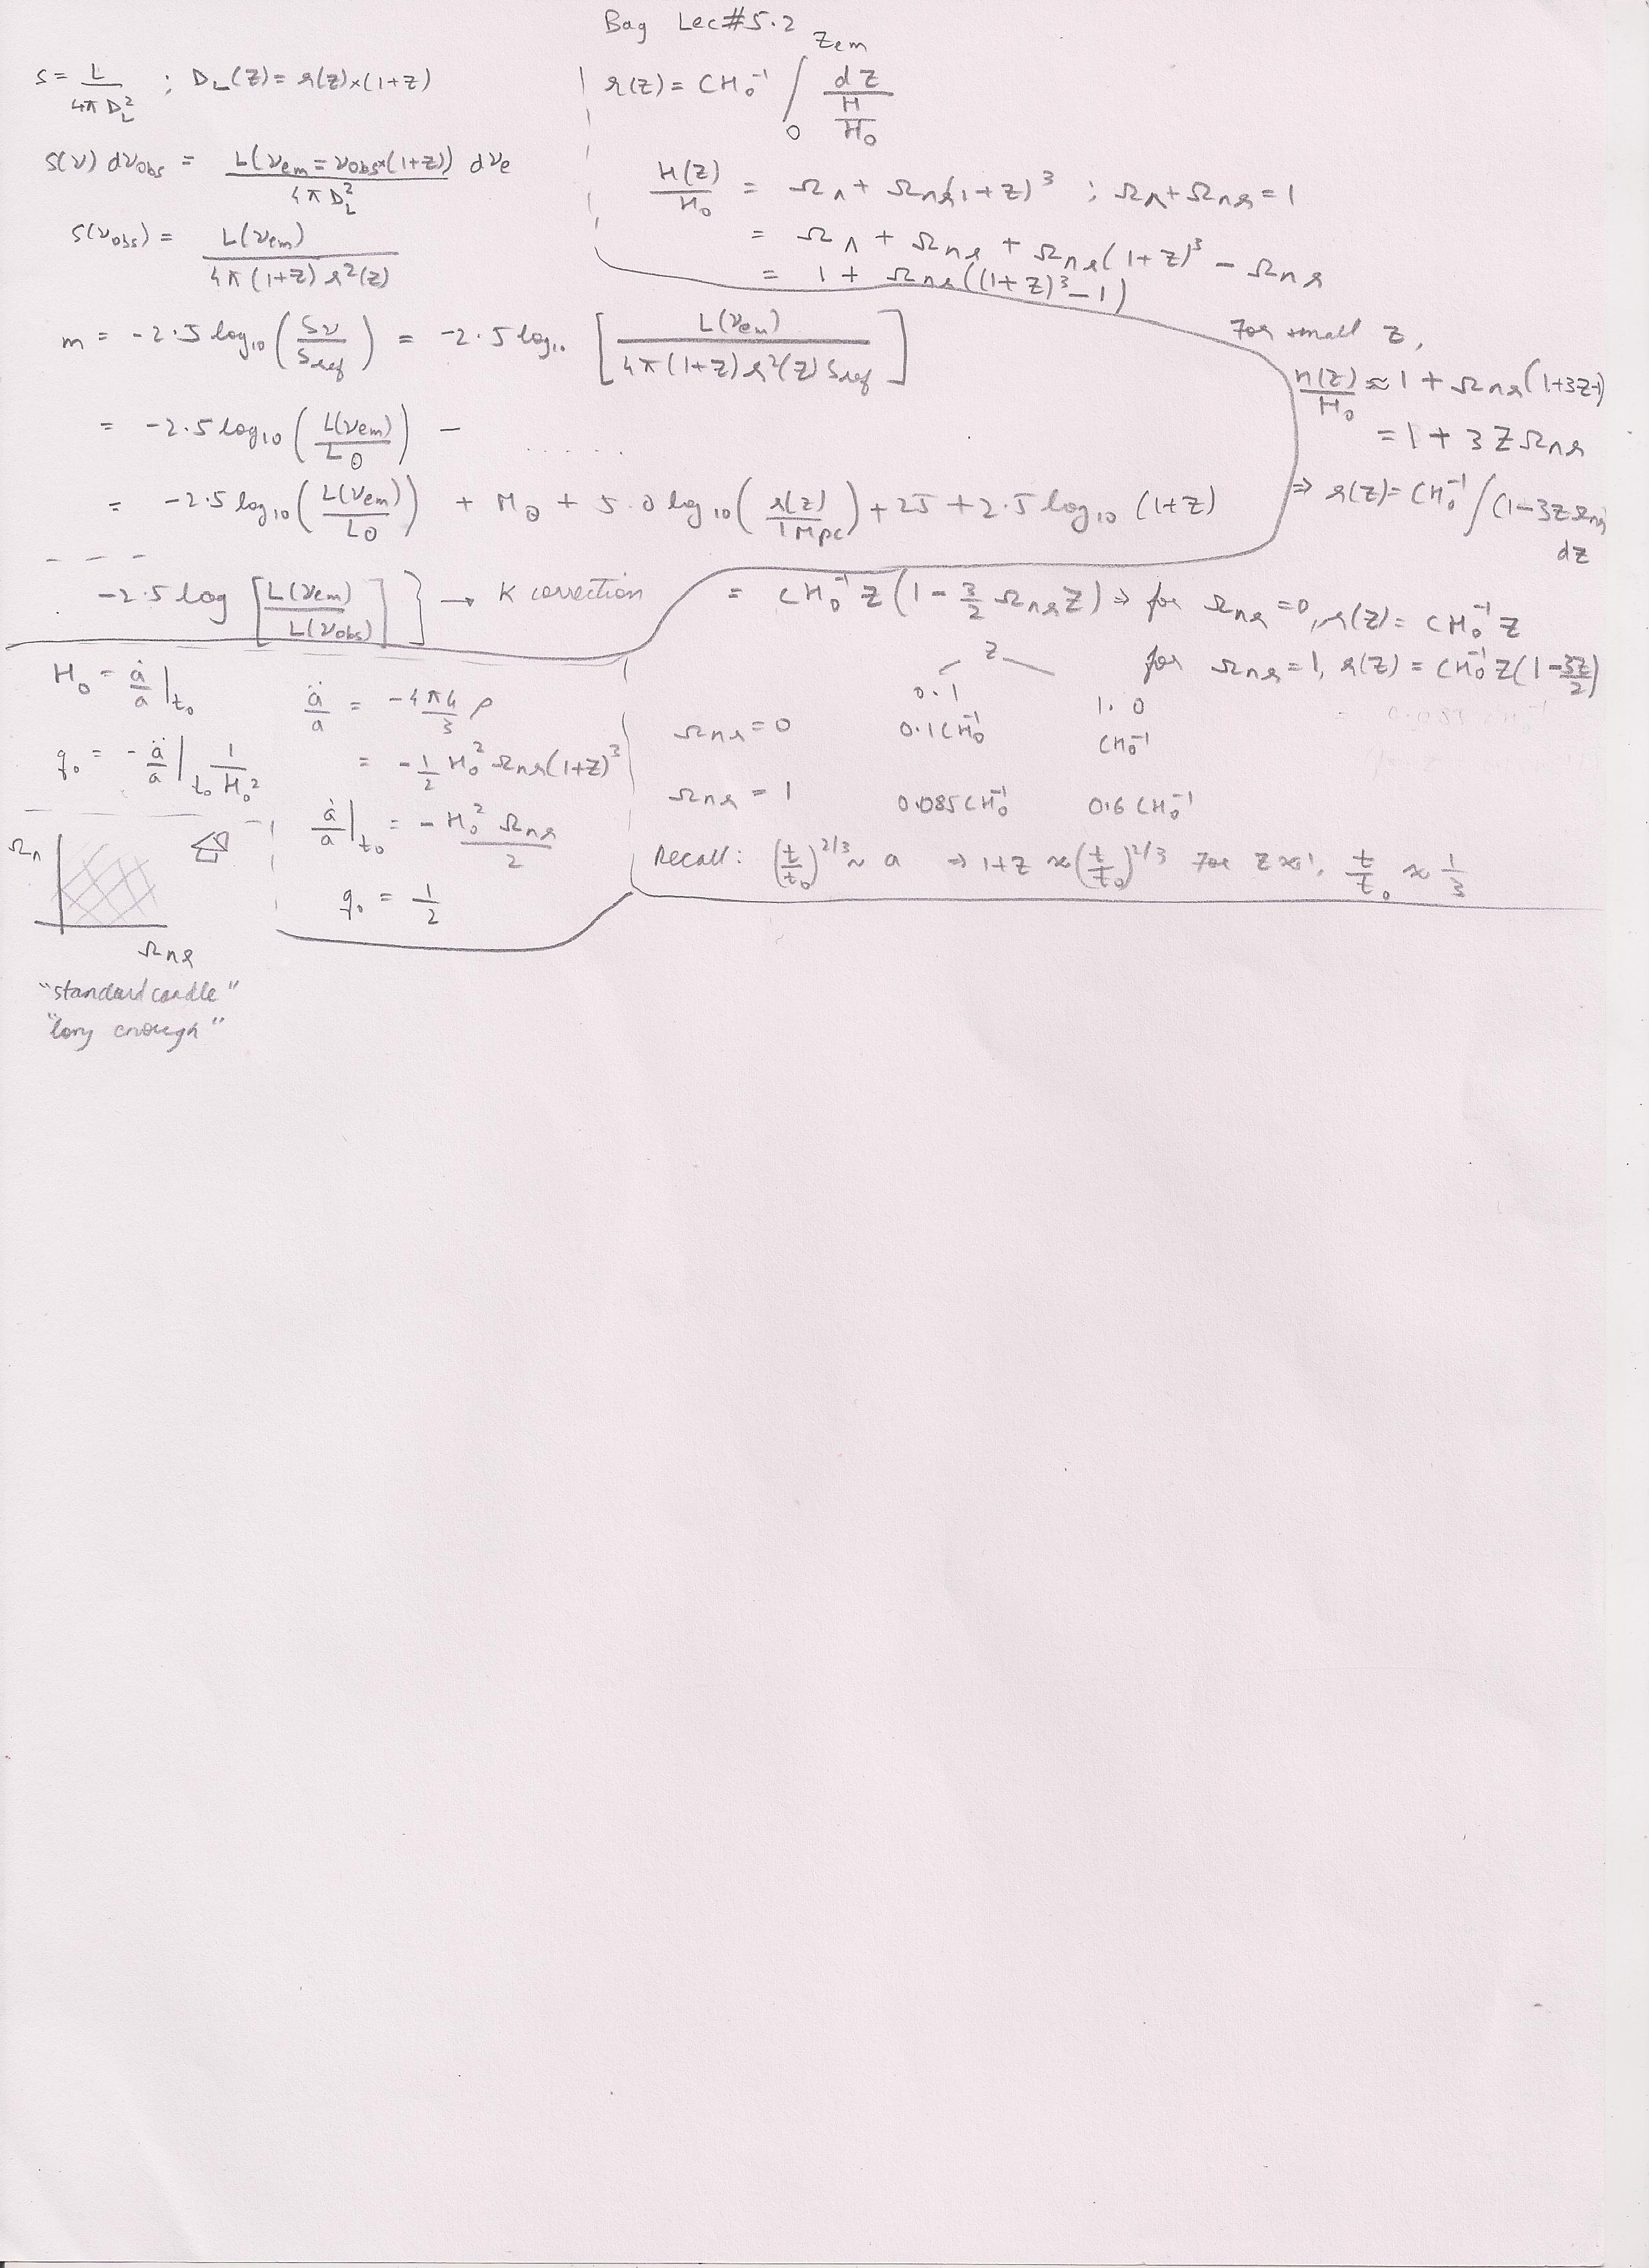 Bag Lec#5.2
S = L / 4πD_L² ; D_L(z) = r(z)×(1+z)
S(ν) dν_obs = L(ν_em = ν_obs×(1+z)) / 4πD_L² dν_e
S(ν_obs) = L(ν_em) / 4π(1+z) r²(z)
m = -2.5 log₁₀ (Sν / S_ref) = -2.5 log₁₀ [ L(ν_em) / 4π(1+z) r²(z) S_ref ]
= -2.5 log₁₀ ( L(ν_em) / L⊙ ) - ......
= -2.5 log₁₀ ( L(ν_em) / L⊙ ) + M⊙ + 5.0 log₁₀ ( r(z) / 1Mpc ) + 25 + 2.5 log₁₀ (1+z)
-2.5 log [ L(ν_em) / L(ν_obs) ] } → K correction
r(z) = CH₀⁻¹ ∫₀^{z_em} dz / (H/H₀)
H(z)/H₀ = Ω_Λ + Ω_nr(1+z)³ ; Ω_Λ + Ω_nr = 1
= Ω_Λ + Ω_nr + Ω_nr(1+z)³ - Ω_nr
= 1 + Ω_nr((1+z)³ - 1)
For small z,
H(z)/H₀ ≈ 1 + Ω_nr(1+3z-1)
= 1 + 3zΩ_nr
⇒ r(z) = CH₀⁻¹ ∫(1-3zΩ_nr) dz
= CH₀⁻¹ z (1 - 3/2 Ω_nr z) ⇒ for Ω_nr = 0, r(z) = CH₀⁻¹ z
for Ω_nr = 1, r(z) = CH₀⁻¹ z (1 - 3z/2)
z
0.1 1.0
Ω_nr = 0 0.1CH₀⁻¹ CH₀⁻¹
Ω_nr = 1 0.085CH₀⁻¹ 0.6CH₀⁻¹
Recall: (t/t₀)^{2/3} ~ a ⇒ 1+z ≈ (t/t₀)^{2/3} For z≈1, t/t₀ ≈ 1/3
H₀ = ȧ/a |_{t₀}
q₀ = - ä/a |_{t₀} 1/H₀²
ä/a = -4πG/3 ρ
= -1/2 H₀² Ω_nr(1+z)³
ä/a |_{t₀} = - H₀² Ω_nr / 2
q₀ = 1/2
Ω_Λ
Ω_nr
"standard candle"
"long enough"